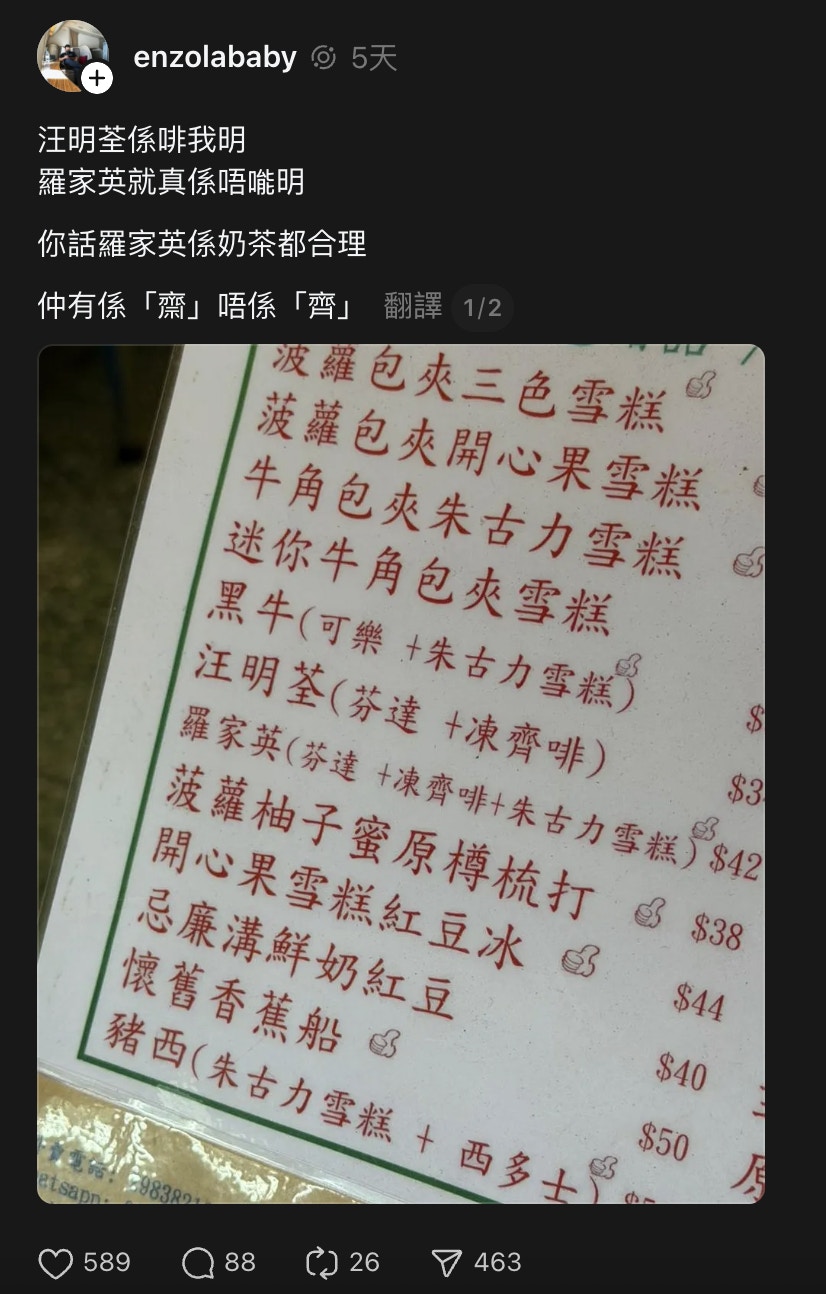 enzolababy 5天
汪明荃係啡我明
羅家英就真係唔嚨明
你話羅家英係奶茶都合理
仲有係「齋」唔係「齊」 翻譯 1/2
菠蘿包夾三色雪糕
菠蘿包夾開心果雪糕
牛角包夾朱古力雪糕
迷你牛角包夾雪糕
黑牛(可樂 +朱古力雪糕)
汪明荃(芬達 +凍齊啡)
羅家英(芬達 +凍齊啡+朱古力雪糕) $42
菠蘿柚子蜜原樽梳打 $38
開心果雪糕紅豆冰 $44
忌廉溝鮮奶紅豆 $40
懷舊香蕉船 $50
豬西(朱古力雪糕 + 西多士)
589 88 26 463